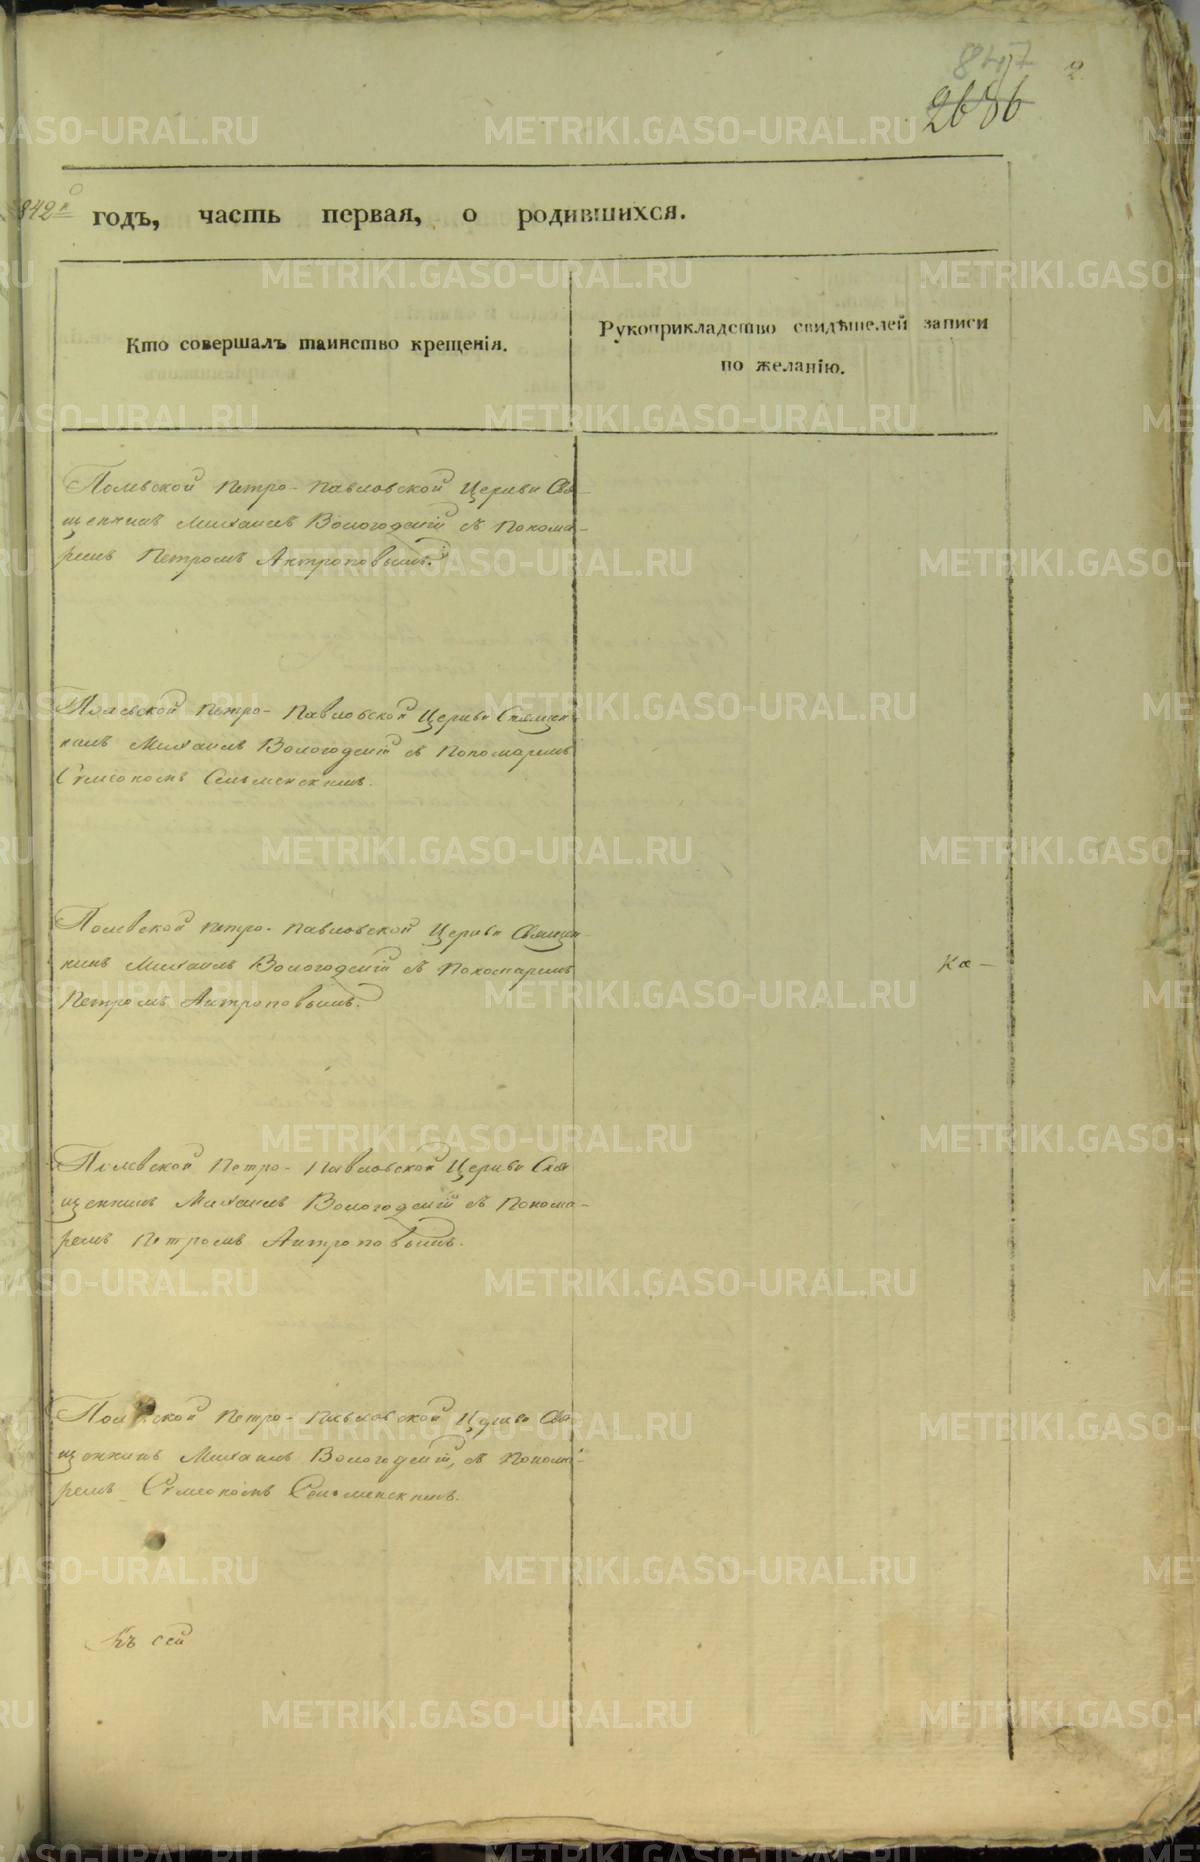 847 2
2686
842го годъ, часть первая, о родившихся.
Кто совершалъ таинство крещенія.
Рукоприкладство свидѣтелей записи
по желанію.
Полевской Петро-Павловской Церкви Свя-
щенникъ Михаилъ Вологодскій съ Понома-
ремъ Петромъ Антроповымъ.
Полевской Петро-Павловской Церкви Священ-
никъ Михаилъ Вологодскій съ Пономаремъ
Симеономъ Сельменскимъ.
Полевской Петро-Павловской Церкви Священ-
никъ Михаилъ Вологодскій съ Пономаремъ
Ка-
Петромъ Антроповымъ.
Полевской Петро-Павловской Церкви Свя
щенникъ Михаилъ Вологодскій съ Понома-
ремъ Петромъ Антроповымъ.
Полевской Петро-Павловской Церкви Свя
щенникъ Михаилъ Вологодскій, съ Понома-
ремъ Симеономъ Сельменскимъ.
Къ сей
METRIKI.GASO-URAL.RU